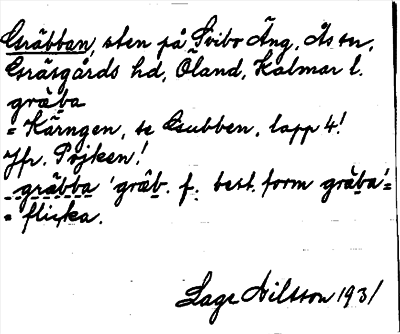 Gräbban, sten på Tvibo Äng, Ås sn,
Gräsgårds hd, Öland, Kalmar l.
gräba
= Kärngen, se Gubben, lapp 4!
Jfr. Pojken!
gräbba 'gräb. f. best. form gräba'=
= flicka.
Lage Nilsson 1931